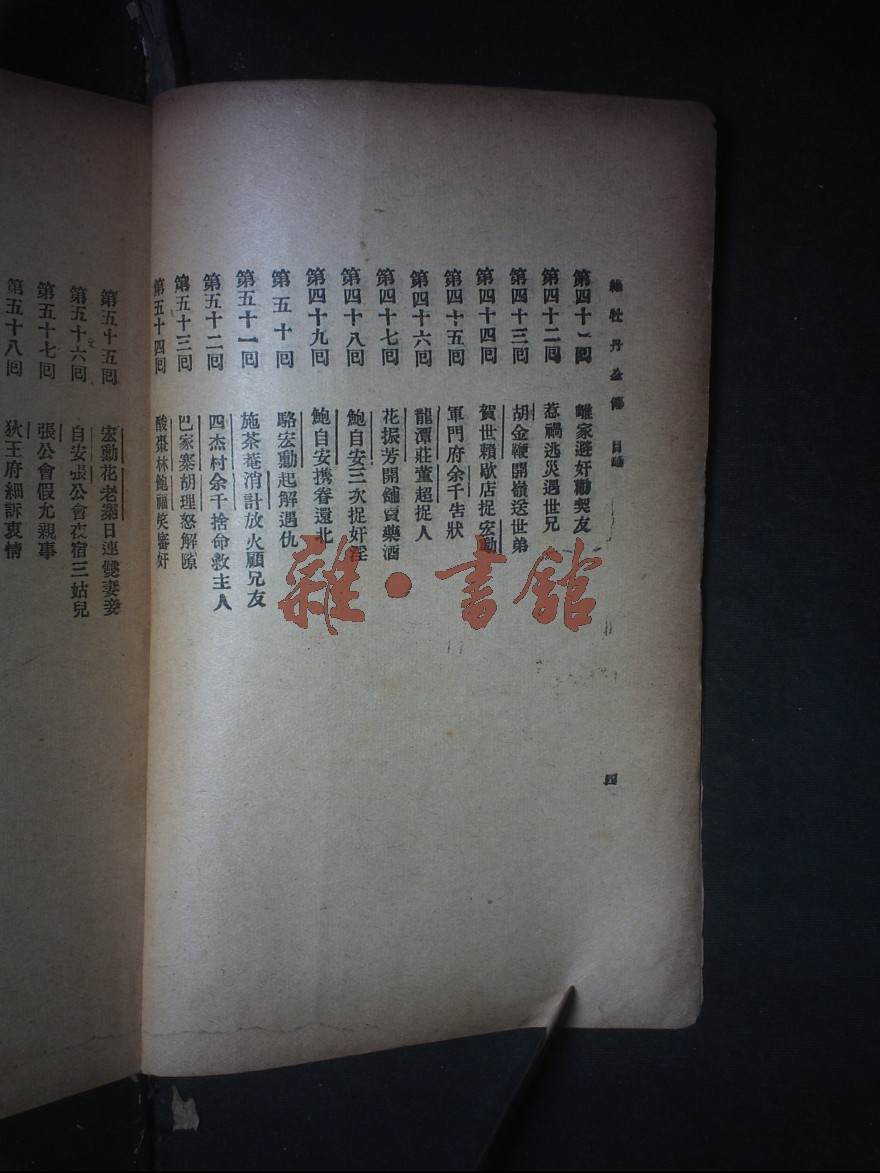 綠牡丹全傳 目錄
第四十一回 離家避奸勸契友
第四十二回 惹禍逃災遇世兄
第四十三回 胡金鞭開嶺送世弟
第四十四回 賀世賴歇店捉宏勳
第四十五回 軍門府余千告狀
第四十六回 龍潭莊董超捉人
第四十七回 花振芳開舖賣藥酒
第四十八回 鮑自安三次捉奸淫
第四十九回 鮑自安携眷還北
第五十回 駱宏勳起解遇仇
第五十一回 施茶菴消計放火顧兄友
第五十二回 四杰村余千捨命救主人
第五十三回 巴家寨胡理怒解隙
第五十四回 酸棗林鮑福笑審奸
第五十五回 宏勳花老寨日連雙妻妾
第五十六回 自安張公會夜宿三姑兒
第五十七回 張公會假允親事
第五十八回 狄王府細訴衷情
四
雜·書館